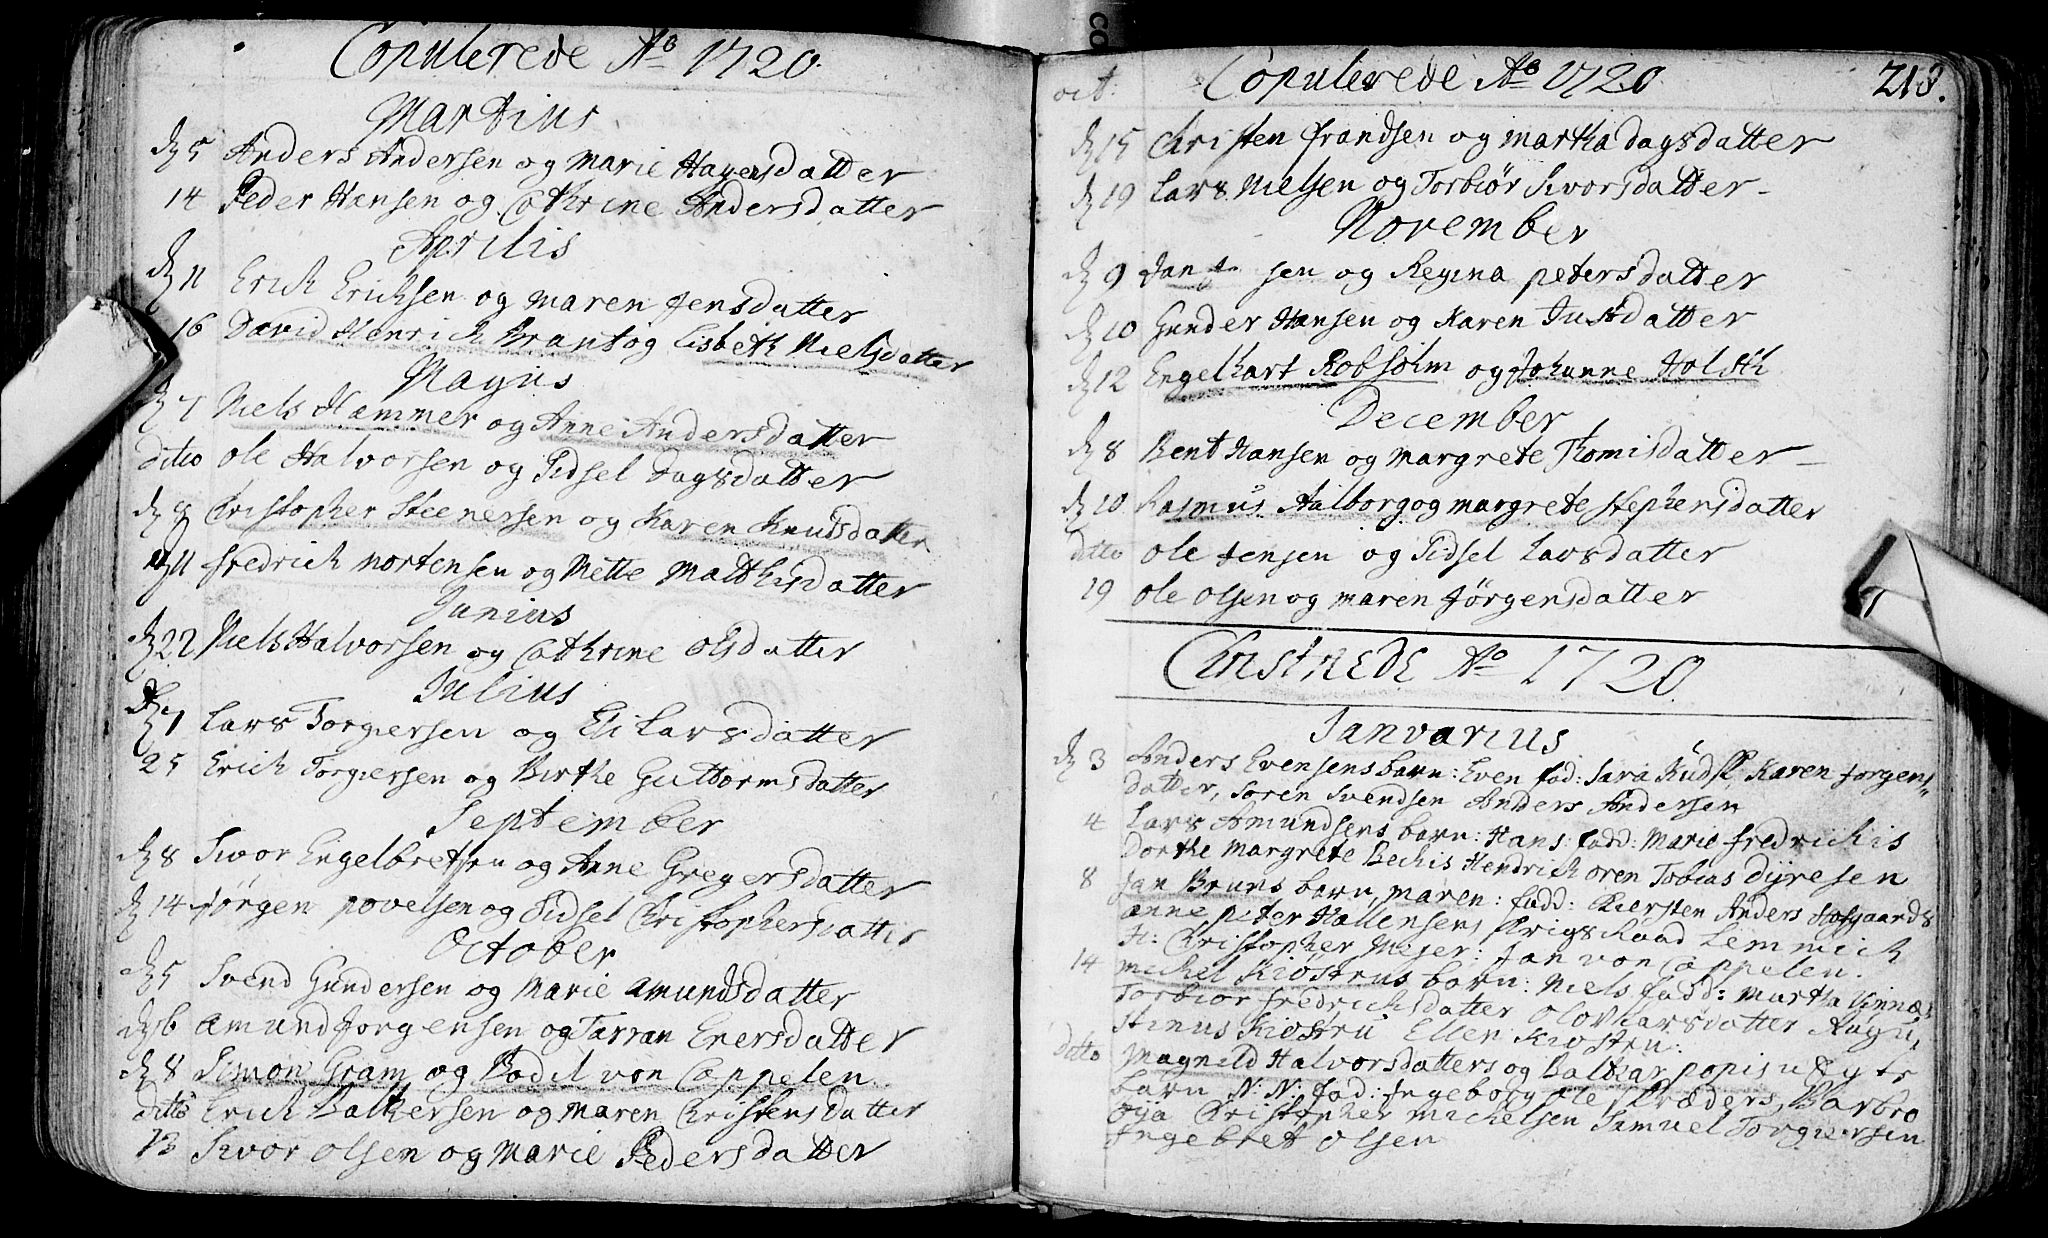 Copulerede Ao 1720.
Martius
d 5 Anders Andersen og Marie Hagensdatter
14 Peder Hansen og Cathrine Andersdatter
Aprilis
d 11 Erich Erichsen og Maren Jensdatter
16 David Henrich Brant og Lisbeth Nielsdatter
Majus
d 7 Niels Hammer og Anne Andersdatter
ditto ole Halvorsen og Sidsel Dagsdatter
d 8 Christopher Steenersen og Karen Knudsdatter
d 11 fredrich Mortensen og Mette Matthisdatter
Junius
d 22 Niels Halvorsen og Cathrine olsdatter
Julius
d 7 Lars Torgiersen og Eli Larsdatter
25 Erich Torgiersen og Birthe Guttormsdatter
September
d 8 Sivor Engelbretsen og Anne Gregersdatter
d 14 Jørgen povelsen og Sidsel Christophersdatter
October
d 5 Svend Gundersen og Marie Amundsdatter
d 6 Amund Jorgensen og Tarran Enersdatter
d 8 Simon Gram og Bodil von Cappelen
ditto Erich Baltzersen og Maren Christensdatter
13 Sivor olsen og Marie Pedersdatter
Copulerede Ao 1720 213.
oct.
d 15 Christen frandsen og martha dagsdatter
d 19 Lars Nielsen og Torbiør Sivorsdatter
November
d 9 Jan sen og Regina petersdatter
d 10 Gunder Hansen og Karen Justdatter
d 12 Engelhart Robsohm og Johanne Holsth
December
d 8 Bent Hansen og Margrete Thomisdatter
d 10 Rasmus Aalborg og margrete stephensdatter
ditto ole Jensen og Sidsel Larsdatter
19 ole olsen og maren Jørgensdatter
Christnede Ao 1720
Januarius
d 3 Anders Evensens barn: Even fad: Sara Karen Jorgens
datter, Soren Svendsen Anders Andersen
4 Lars Amundsens barn: Hans: fadd: Marie fredrichis
Dorthe Margrete Bechis Hendrich oren Tobias Dyresen
8 Jan Bruns barn, maren: fadd: Kiersten Anders Hofgaards
anne peter Hallensens Krigs Raad Lemmich
H: Christopher Mejer: Jan von Cappelen.
14 michel Kiøstrus barn: Niels fadd: Martha
Torbior fredrichsdatter olov Larsdatter Augu,
stinus Kiøstru Ellen Kiøstru.
ditto Magnild Halvorsdatters og Baltzar
barn N: N: fad: Ingeborg ole Præders, Barbro
Christopher Michelsen Samuel Torgiersen
Ingebret olsen